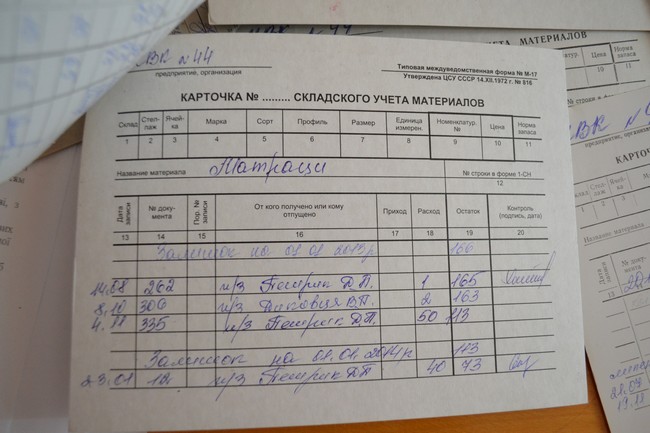 ВК №44
предприятие, организация
Типовая междуведомственная форма № М-17
Утверждена ЦСУ СССР 14.XII.1972 г. № 816
КАРТОЧКА № ......... СКЛАДСКОГО УЧЕТА МАТЕРИАЛОВ
Склад Стел-лаж Ячей-ка Марка Сорт Профиль Размер Единица измерен. Номенклатур. № Цена Норма запаса
1 2 3 4 5 6 7 8 9 10 11
Название материала Матраци № строки в форме 1-СН
12
Дата записи № доку-мента Пор. № записи От кого получено или кому отпущено Приход Расход Остаток Контроль (подпись, дата)
13 14 15 16 17 18 19 20
Залишок на 01.01.2013р 166
14.08 262 ч/з Петрик Д.П. 1 165
8.10 306 ч/з В.П. 2 163
4.11 335 ч/з Петрик Д.П. 50 113
Залишок на 01.01.2014р 113
23.01 12 ч/з Петрик Д.П 40 73
УЧЕТА МАТЕРИАЛОВ
Цена Норма запаса
10 11
№ строки в
ВК №
предприятие, организа
КАРТОЧ
Склад Стел-лаж Ячей-ка
1 2 3
Название материала
Дата записи
13